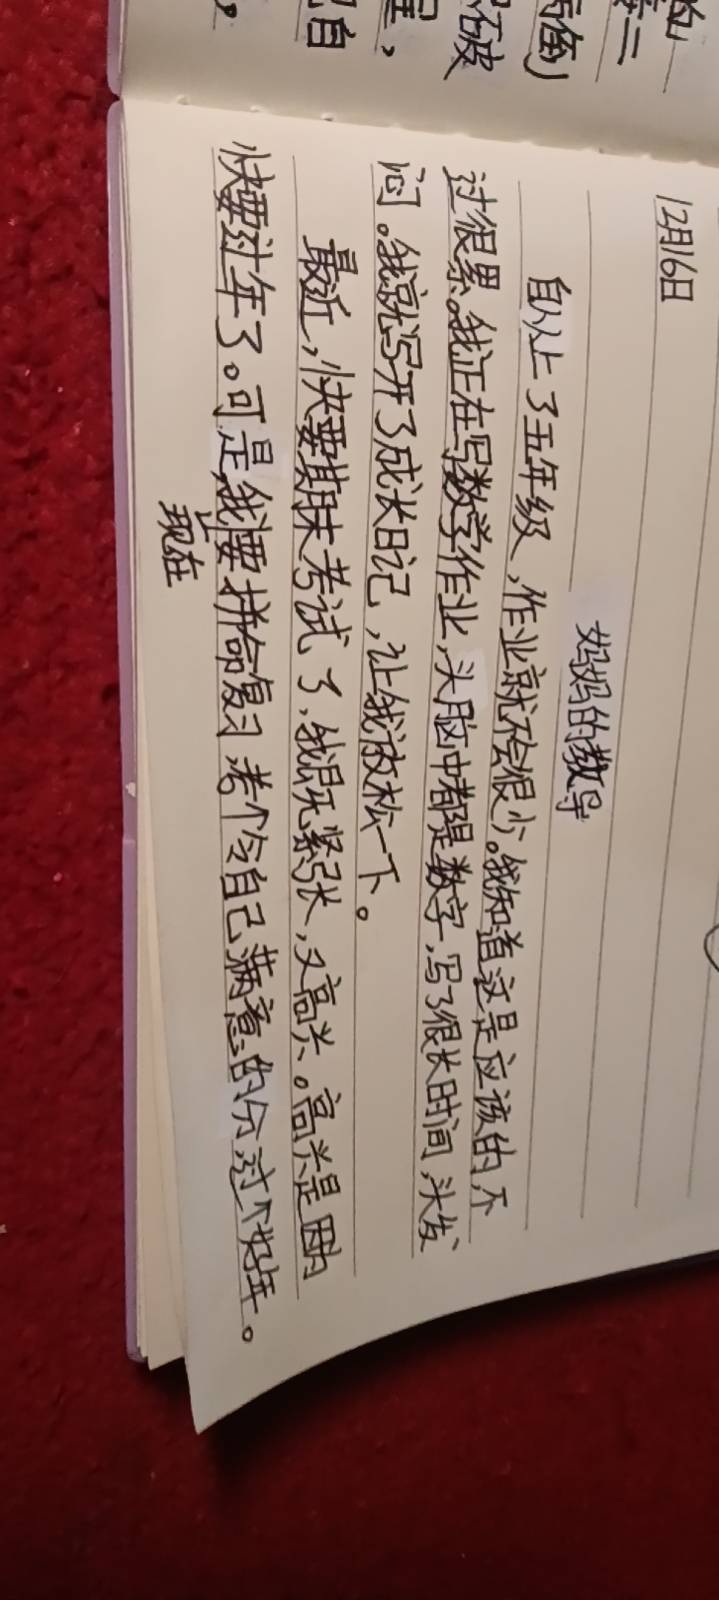 12月16日
妈妈的教导
自从上了五年级，作业就不会很少。我知道这是应该的，不
过很累。我正在写数学作业，头脑中都是数字，写了很长时间，头发
闷。我就写开了成长日记，让我放松一下。
最近，快要期末考试了，我既紧张，又高兴。高兴是因为
快要过年了。可是，我现在要拼命复习考个令自己满意的分，过个好年。
破
自